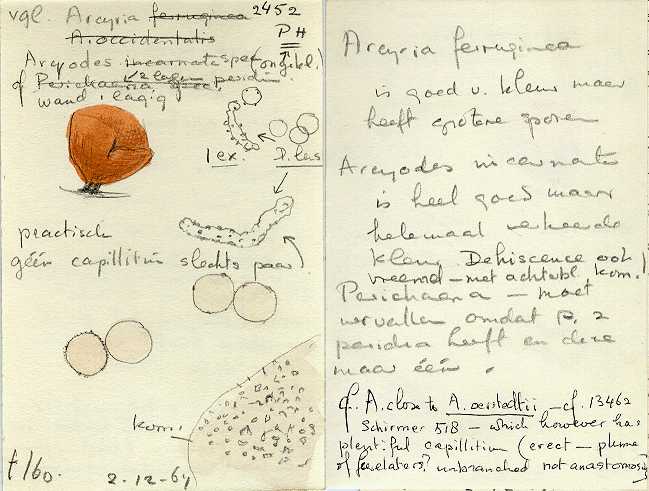 vgl. Arcyria ferruginea 2452
A. occidentalis PH
Arcyodes incarnata
of Perichaena 2 lagen
wand 1 lagig
1 ex.
practisch
géén capillitium slechts paar
korn.
t 160. 2.12-64
Arcyria ferruginea
is goed v. kleur maar
heeft grotere sporen
Arcyodes incarnata
is heel goed maar
helemaal verkeerde
kleur. Dehiscence ook
vreemd – met achtwbl korn.!
Perichaena – moet
vervallen omdat P. 2
peridia heeft en deze
maar één.
cf. A. close to A. oerstedtii – cf. 13462
Schirmer 518 – which however has
plentiful capillitium (erect – plume
of few elaters? unbranched not anastomosing